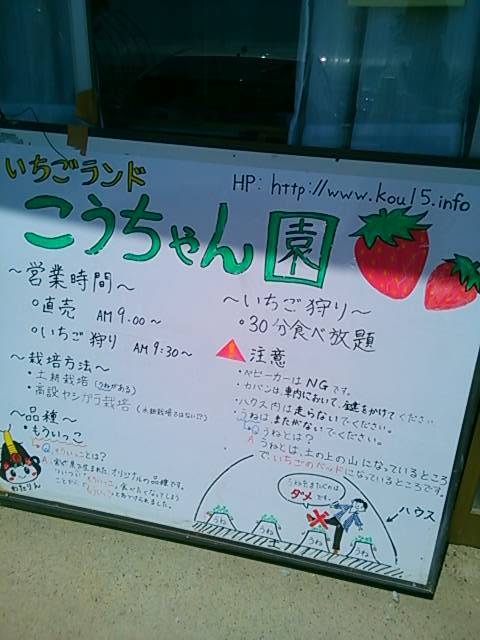 いちごランド
HP: http://www.kou15.info
こうちゃん園
～営業時間～
・直売 AM 9:00～
・いちご狩り AM 9:30～
～栽培方法～
・土耕栽培（うねがある）
・高設ヤシガラ栽培（水耕栽培ではない!?）
～品種～
・もういっこ
Q. もういっことは?
A. 宮城で生まれた、オリジナルの品種です。
ついつい「もういっこ」食べたくなってしまう
ことから、もういっこと名づけられました。
わたりん
～いちご狩り～
・30分食べ放題
注意
・ベビーカーは NG です。
・カバンは、車内において、鍵をかけてください
・ハウス内は走らないでください。
・うねは、またがないでください。
Q うねとは?
A うねとは、土の上の山になっているところ
で、いちごのベッドになっているところです。
うねをまたぐのは
ダメです。
ハウス
うね
うね
うね
うね
土